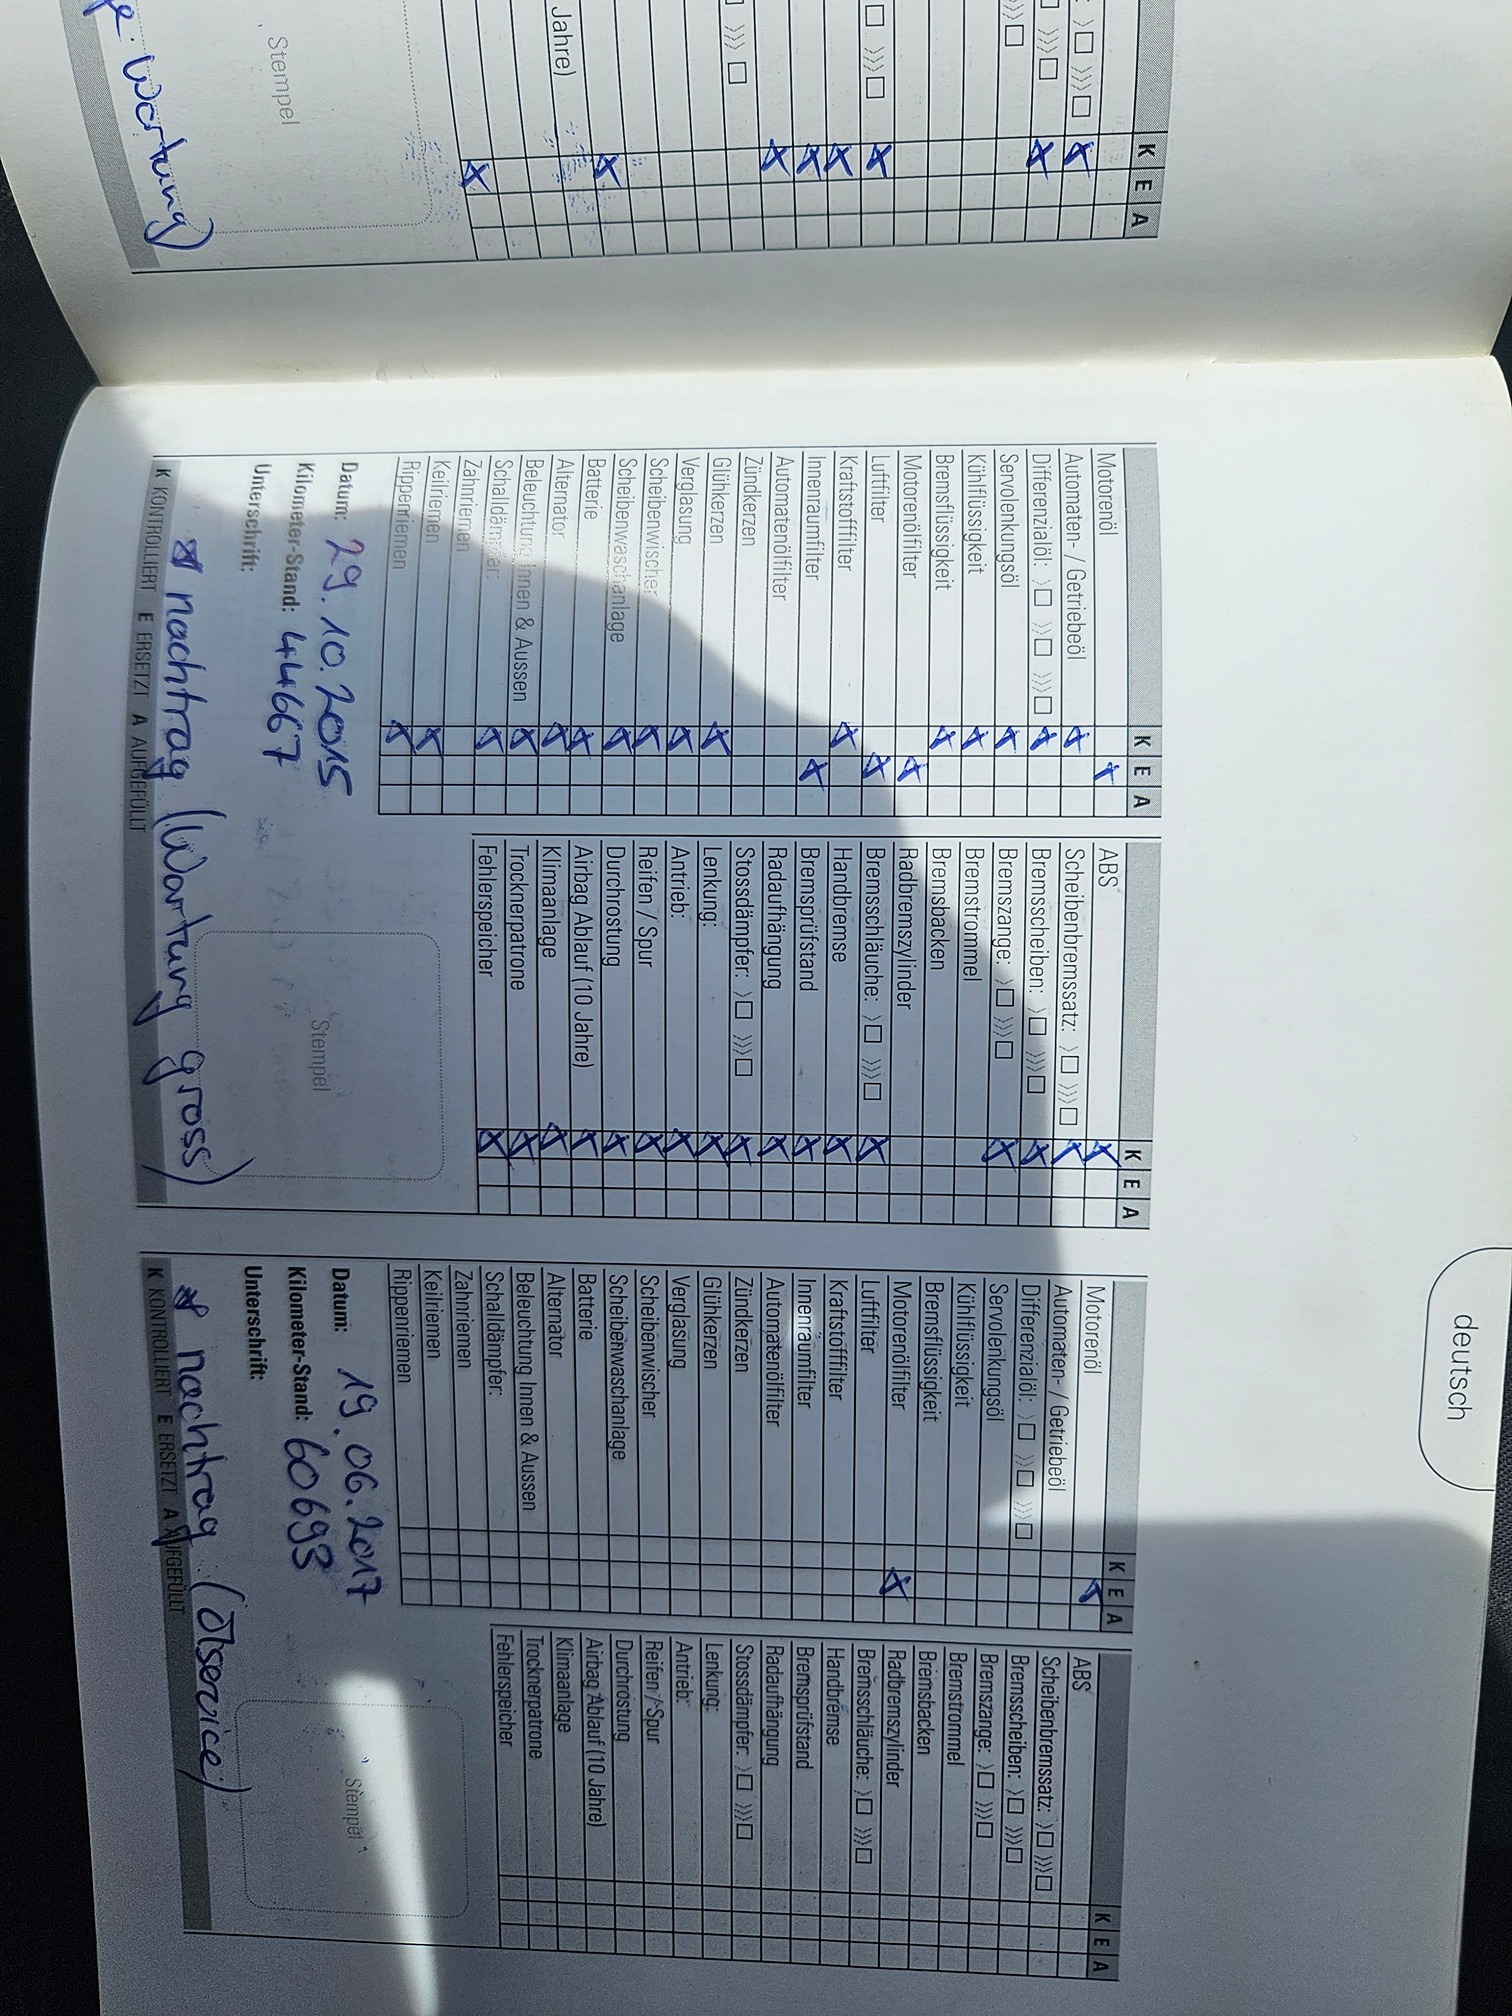 K E A
Jahre)
Stempel
Wartung)
deutsch
K E A
Motorenöl
Automaten- / Getriebeöl
Differenzialöl: 〉□ 〉〉□ 〉〉〉□
Servolenkungsöl
Kühlflüssigkeit
Bremsflüssigkeit
Motorenölfilter
Luftfilter
Kraftstofffilter
Innenraumfilter
Automatenölfilter
Zündkerzen
Glühkerzen
Verglasung
Scheibenwischer
Scheibenwaschanlage
Batterie
Alternator
Beleuchtung Innen & Aussen
Schalldämpfer:
Zahnriemen
Keilriemen
Rippenriemen
Datum: 29.10.2015
Kilometer-Stand: 44667
Unterschrift:
* nachtrag (Wartung gross)
K KONTROLLIERT E ERSETZT A AUFGEFÜLLT
K E A
ABS
Scheibenbremssatz: 〉□ 〉〉〉□
Bremsscheiben: 〉□ 〉〉〉□
Bremszange: 〉□ 〉〉〉□
Bremstrommel
Bremsbacken
Radbremszylinder
Bremsschläuche: 〉□ 〉〉〉□
Handbremse
Bremsprüfstand
Radaufhängung
Stossdämpfer: 〉□ 〉〉〉□
Lenkung:
Antrieb:
Reifen / Spur
Durchrostung
Airbag Ablauf (10 Jahre)
Klimaanlage
Trocknerpatrone
Fehlerspeicher
Stempel
K E A
Motorenöl
Automaten- / Getriebeöl
Differenzialöl: 〉□ 〉〉□ 〉〉〉□
Servolenkungsöl
Kühlflüssigkeit
Bremsflüssigkeit
Motorenölfilter
Luftfilter
Kraftstofffilter
Innenraumfilter
Automatenölfilter
Zündkerzen
Glühkerzen
Verglasung
Scheibenwischer
Scheibenwaschanlage
Batterie
Alternator
Beleuchtung Innen & Aussen
Schalldämpfer:
Zahnriemen
Keilriemen
Rippenriemen
Datum: 19.06.2017
Kilometer-Stand: 60693
Unterschrift:
* nachtrag (Ölservice)
K KONTROLLIERT E ERSETZT A AUFGEFÜLLT
K E A
ABS
Scheibenbremssatz: 〉□ 〉〉〉□
Bremsscheiben: 〉□ 〉〉〉□
Bremszange: 〉□ 〉〉〉□
Bremstrommel
Bremsbacken
Radbremszylinder
Bremsschläuche: 〉□ 〉〉〉□
Handbremse
Bremsprüfstand
Radaufhängung
Stossdämpfer: 〉□ 〉〉〉□
Lenkung:
Antrieb:
Reifen / Spur
Durchrostung
Airbag Ablauf (10 Jahre)
Klimaanlage
Trocknerpatrone
Fehlerspeicher
Stempel